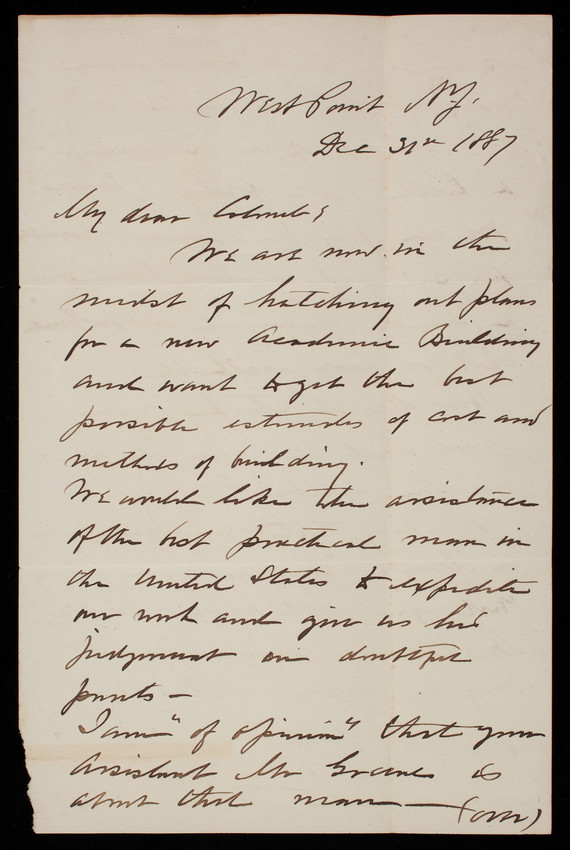 West Point N.Y.
Dec 31st 1887
My dear Colonel;
We are now in the
midst of hatching out plans
for a new Academic Building
and want to get the best
possible estimates of cost and
methods of building.
We would like the assistance
of the best practical man in
the United States to expedite
our work and give us his
judgment on doubtful
points —
I am "of opinion" that your
assistant Mr Greene is
about that man — (over)